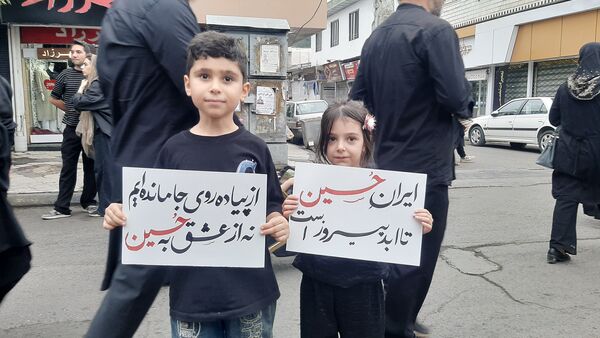 ایران حسین
تا ابد پیروز است
از پیاده روی جا مانده ایم
نه از عشق به حسین